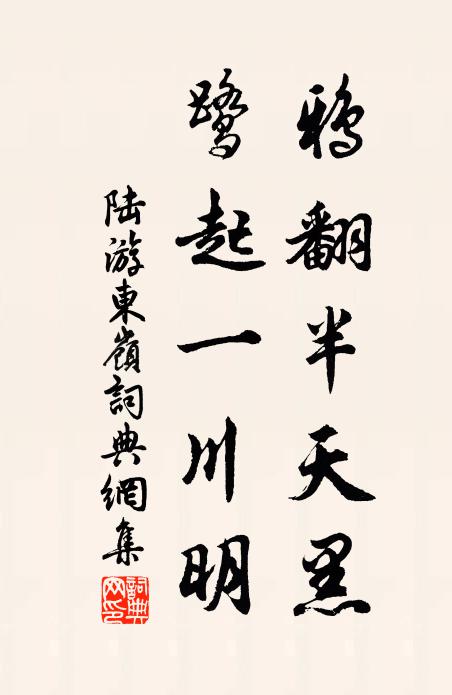 鴉翻半天黑
鹭起一川明
陆游東嶺詞典網集
詞典網印